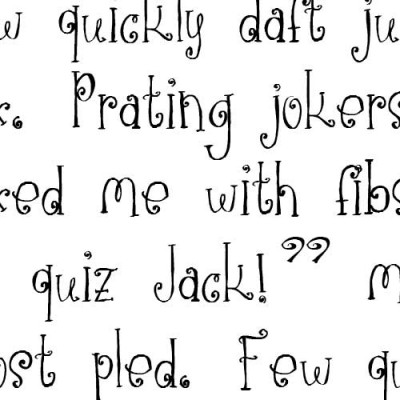 w quickly daft ju
x. Prating jokers
xed me with fibs
quiz Jack!” M
ost pled. Few qu